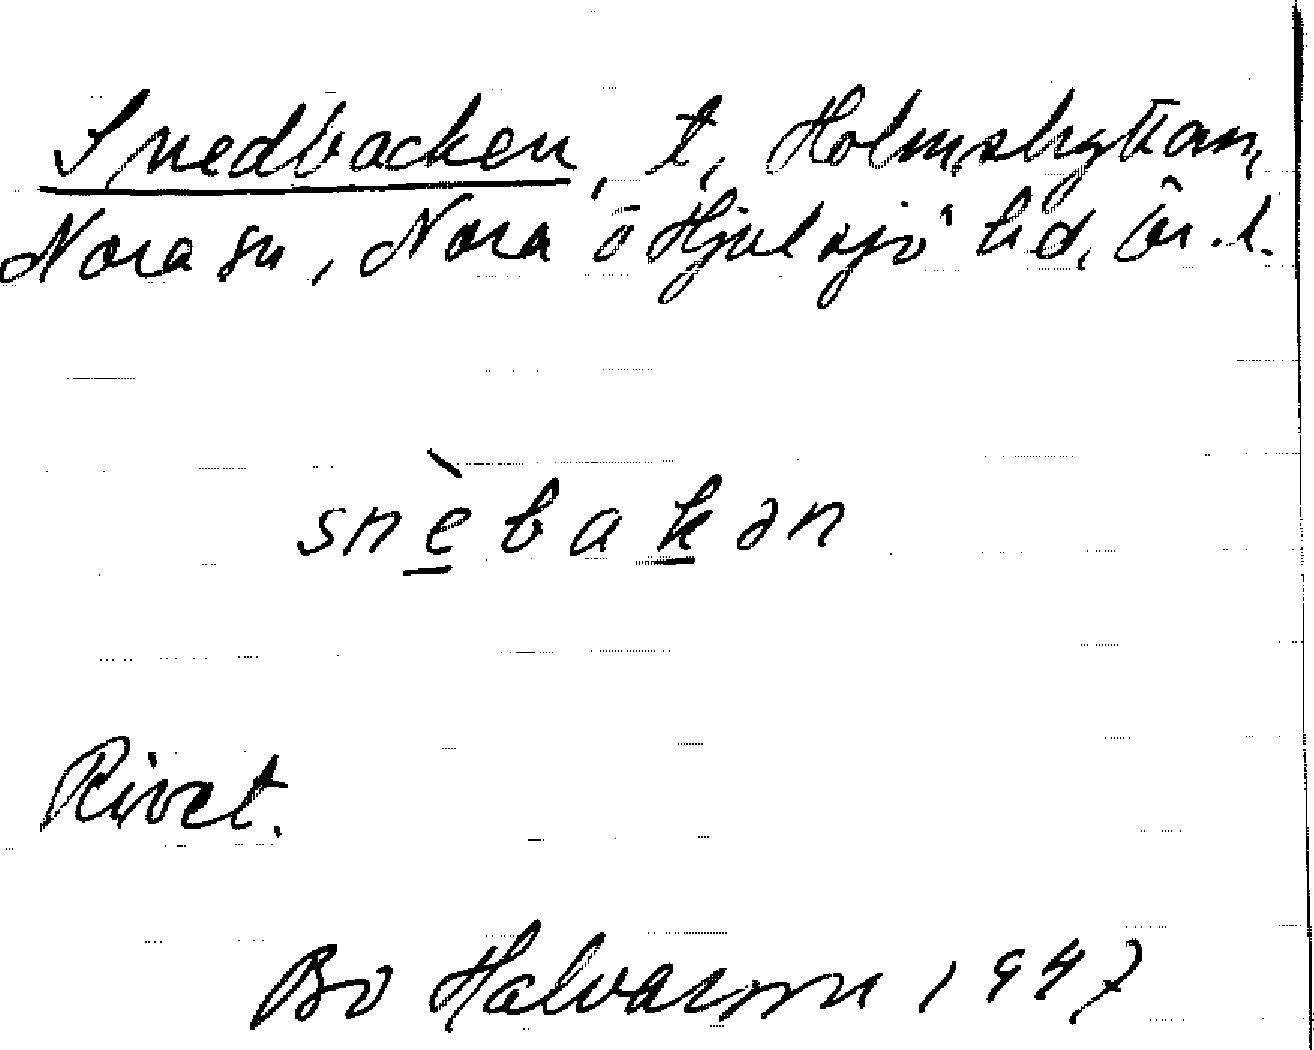 Snedbacken, t, Holmshyttan,
Nora sn, Nora o Hjulsjö hd, Ör.l.
snèbakən
Rivet.
Bo Halvarson 1947